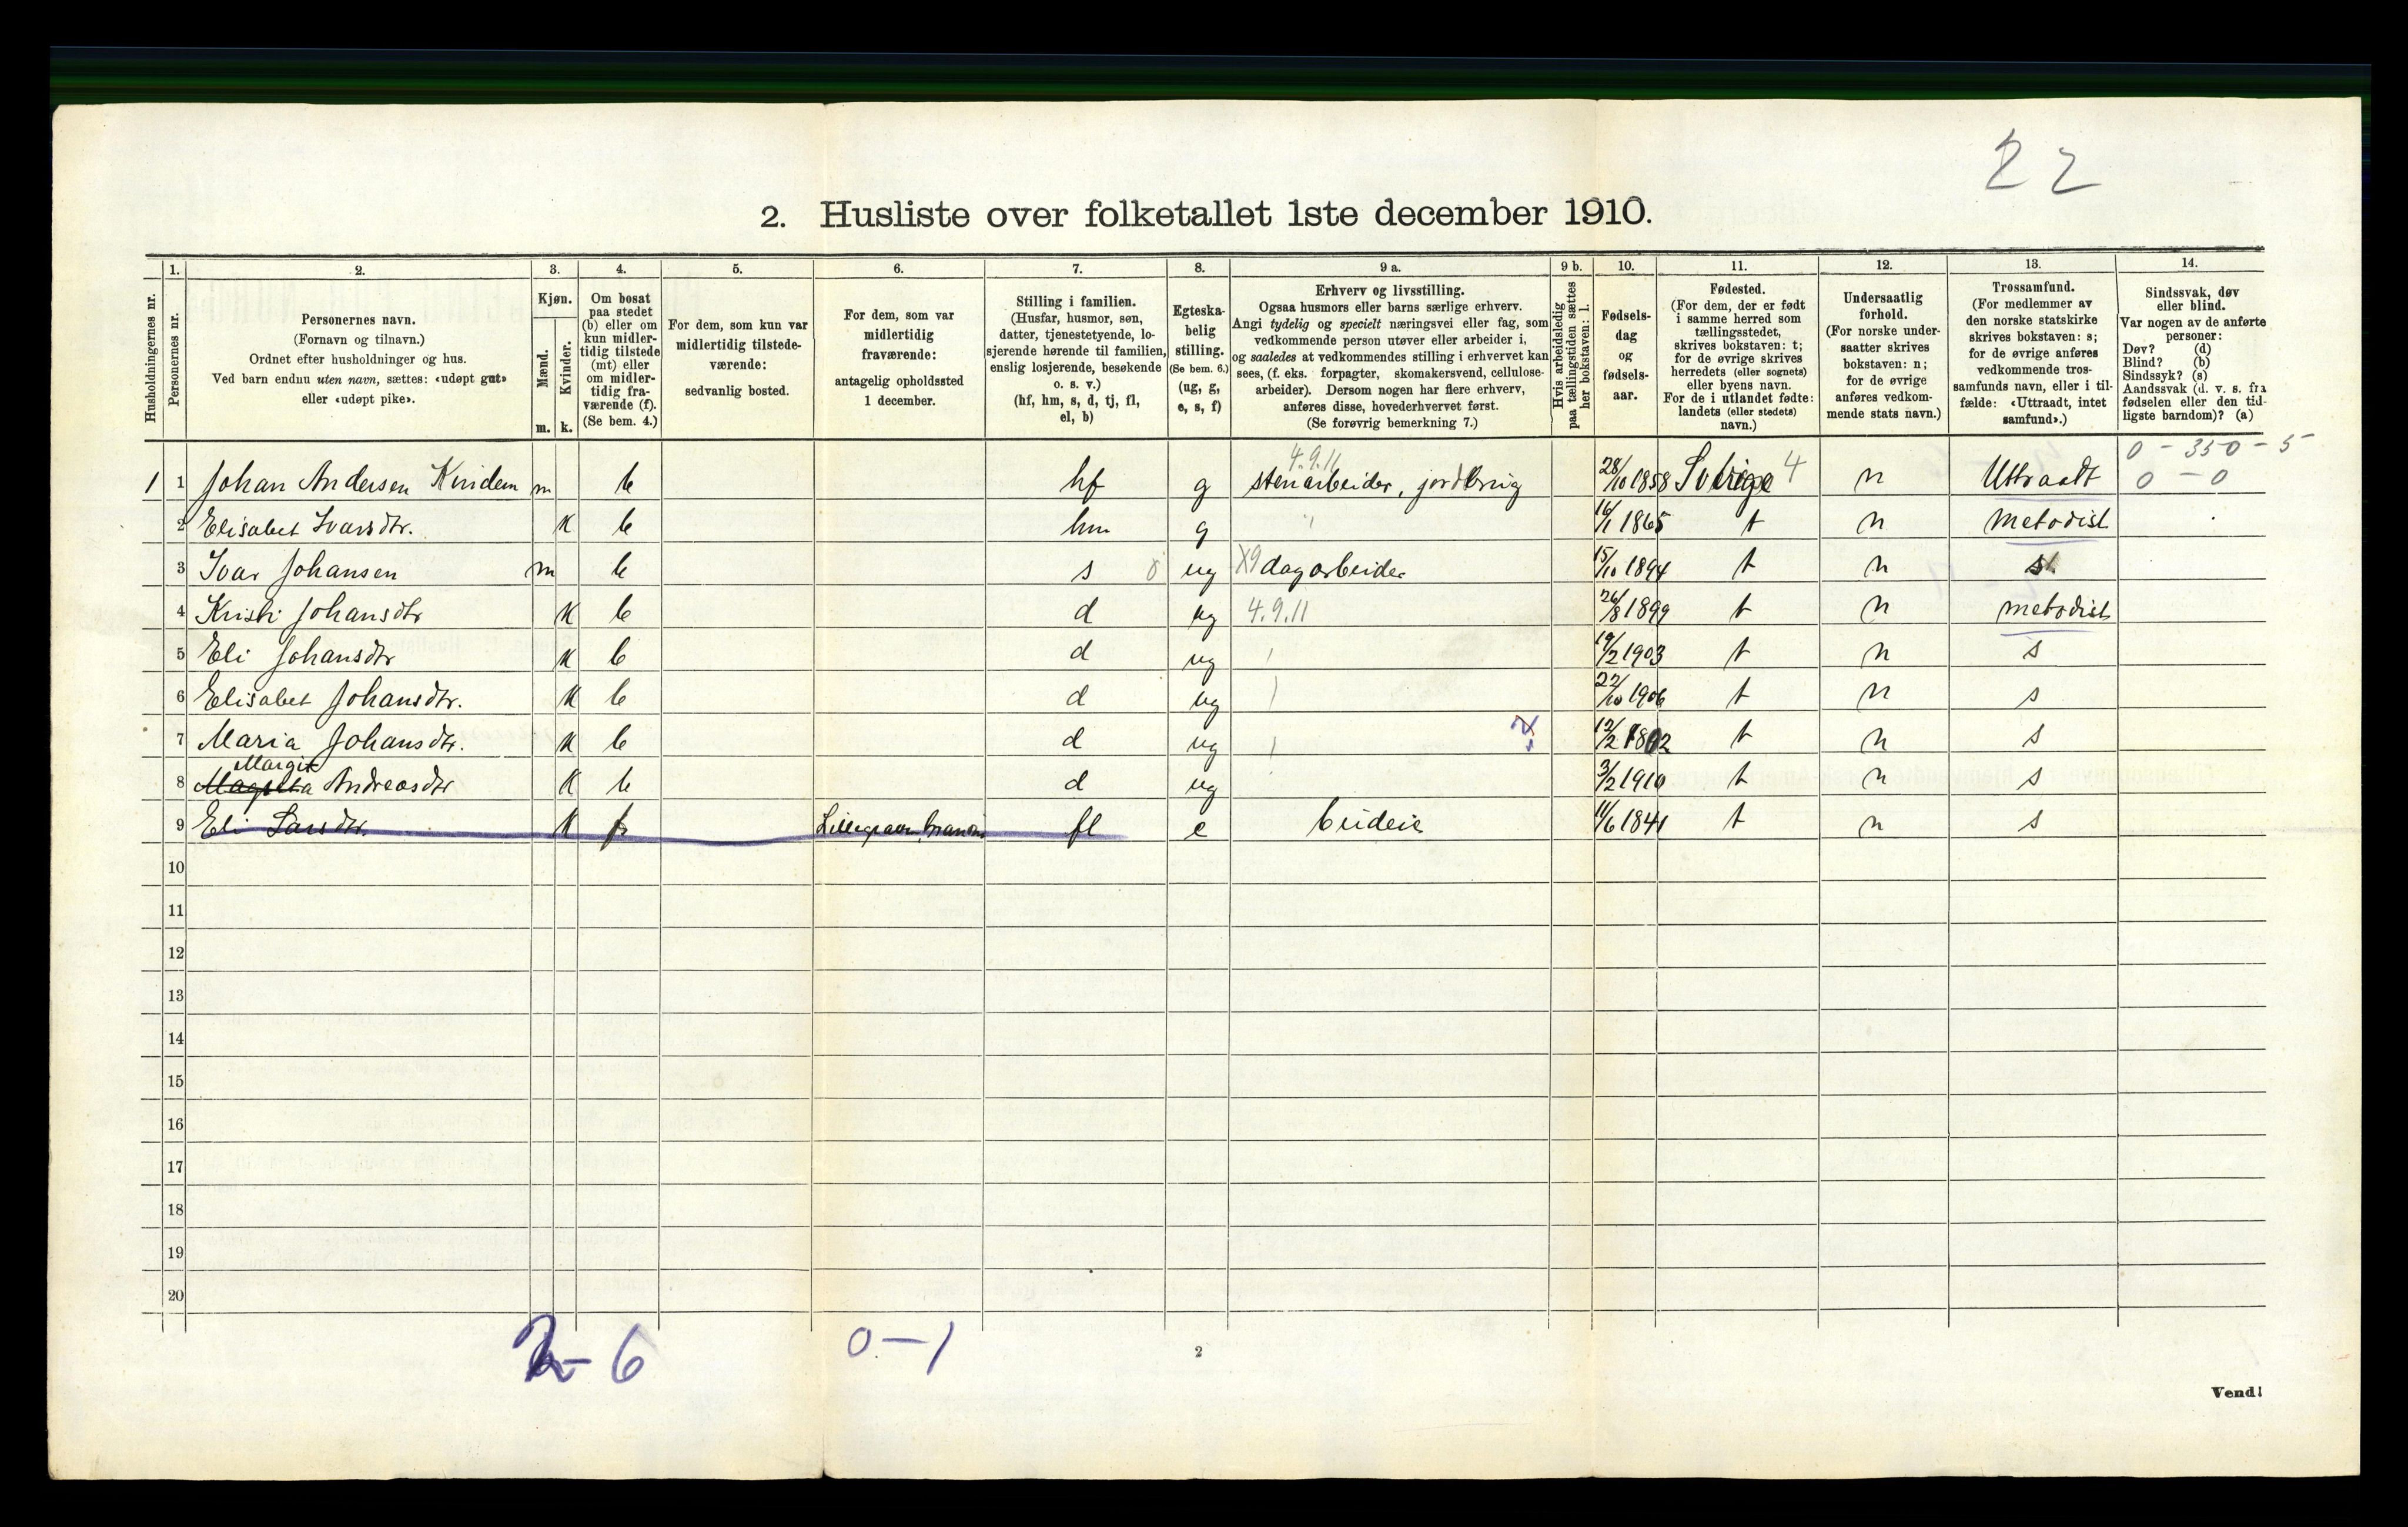 22
2. Husliste over folketallet 1ste december 1910.
Husholdningernes nr.
1.
Personernes nr.
2.
Personernes navn.
(Fornavn og tilnavn.)
Ordnet efter husholdninger og hus.
Ved barn endnu uten navn, sættes: «udøpt gut»
eller «udøpt pike».
3.
Kjøn.
Mænd.
Kvinder.
m. k.
4.
Om bosat
paa stedet
(b) eller om
kun midler-
tidig tilstede
(mt) eller
om midler-
tidig fra-
værende (f).
(Se bem. 4.)
5.
For dem, som kun var
midlertidig tilstede-
værende:
sedvanlig bosted.
6.
For dem, som var
midlertidig
fraværende:
antagelig opholdssted
1 december.
7.
Stilling i familien.
(Husfar, husmor, søn,
datter, tjenestetyende, lo-
sjerende hørende til familien,
enslig losjerende, besøkende
o. s. v.)
(hf, hm, s, d, tj, fl,
el, b)
8.
Egteska-
belig
stilling.
(Se bem. 6.)
(ug, g,
e, s, f)
9 a.
Erhverv og livsstilling.
Ogsaa husmors eller barns særlige erhverv.
Angi tydelig og specielt næringsvei eller fag, som
vedkommende person utøver eller arbeider i,
og saaledes at vedkommendes stilling i erhvervet kan
sees, (f. eks. forpagter, skomakersvend, cellulose-
arbeider). Dersom nogen har flere erhverv,
anføres disse, hovederhvervet først.
(Se forøvrig bemerkning 7.)
9 b.
Hvis arbeidsledig
paa tællingstiden sættes
her bokstaven: l.
10.
Fødsels-
dag
og
fødsels-
aar.
11.
Fødested.
(For dem, der er født
i samme herred som
tællingsstedet,
skrives bokstaven: t;
for de øvrige skrives
herredets (eller sognets)
eller byens navn.
For de i utlandet fødte:
landets (eller stedets)
navn.)
12.
Undersaatlig
forhold.
(For norske under-
saatter skrives
bokstaven: n;
for de øvrige
anføres vedkom-
mende stats navn.)
13.
Trossamfund.
(For medlemmer av
den norske statskirke
skrives bokstaven: s;
for de øvrige anføres
vedkommende tros-
samfunds navn, eller i til-
fælde: «Uttraadt, intet
samfund».)
14.
Sindssvak, døv
eller blind.
Var nogen av de anførte
personer:
Døv? (d)
Blind? (b)
Sindssyk? (s)
Aandssvak (d. v. s. fra
fødselen eller den tid-
ligste barndom)? (a)
0 - 350 - 5
4.9.11
1 1 Johan Andersen Kvidem m b hf g stenarbeider, jordbrug 28/10 1858 Sverige 4 n Uttraadt 0 - 0
2 Elisabet Ivarsdtr. K b hm g 16/1 1865 t n metodist
3 Ivar Johansen m b s ug X9 dagarbeider 15/10 1894 t n s
4 Kristi Johansdtr K b d ug 4.9.11 26/8 1899 t n metodist
5 Eli Johansdtr K b d ug 19/2 1903 t n s
6 Elisabet Johansdtr. K b d ug 22/10 1906 t n s
7 Maria Johansdtr. K b d ug 12/2 t n s
Margit
8 Andreasdtr K b d ug 3/2 1910 t n s
9 Eli Larsdtr. K f fl e budeie 11/6 1841 t n s
10
11
12
13
14
15
16
17
18
19
20
2 - 6
0 - 1
2
Vend!